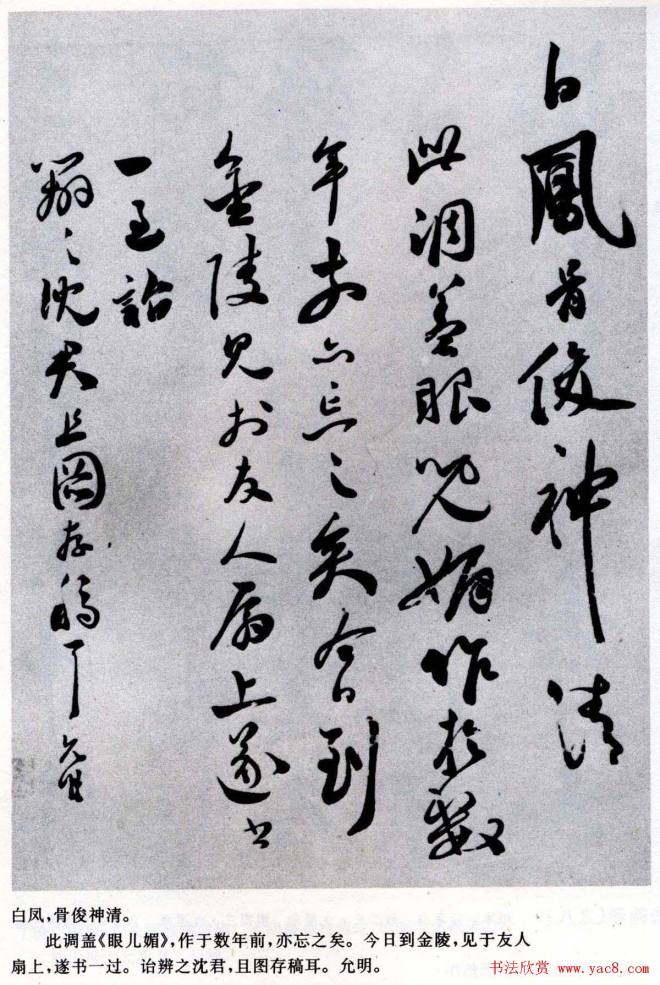 白鳳骨俊神清
此調蓋眼児媚作於數
年前亦忘之矣今日到
金陵見於友人扇上遂书
一过詒
辨之沈君且圖存稿耳允明
白凤,骨俊神清。
此调盖《眼儿媚》,作于数年前,亦忘之矣。今日到金陵,见于友人
扇上,遂书一过。诒辨之沈君,且图存稿耳。允明。
书法欣赏 www.yac8.com